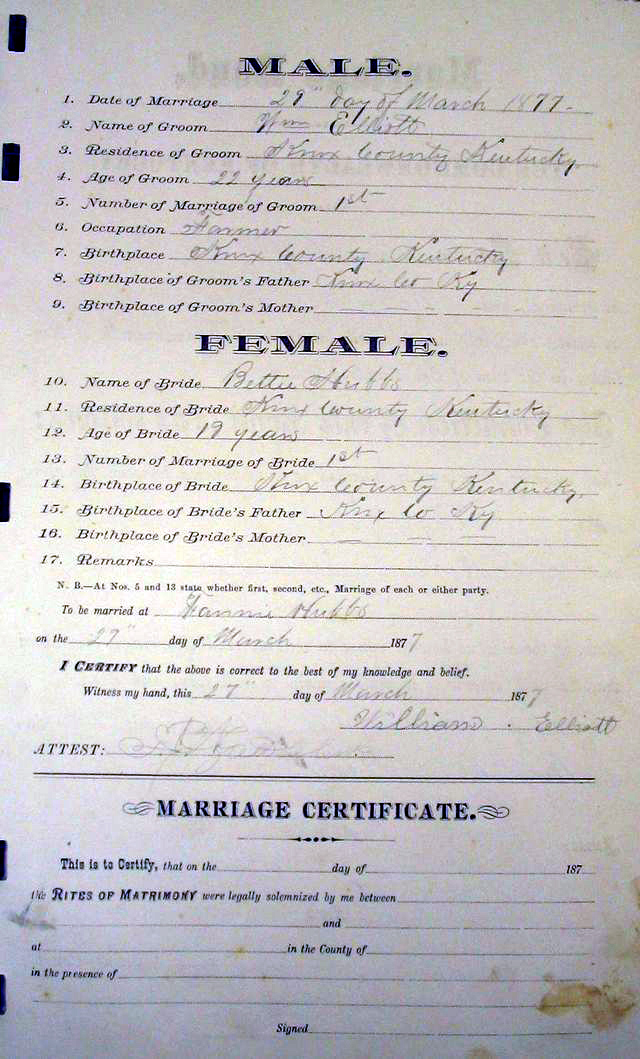 MALE.
1. Date of Marriage 29" day of March 1877.
2. Name of Groom Wm Elliott
3. Residence of Groom Knox County Kentucky.
4. Age of Groom 22 years
5. Number of Marriage of Groom 1st
6. Occupation Farmer
7. Birthplace Knox County Kentucky
8. Birthplace of Groom's Father Knox Co Ky
9. Birthplace of Groom's Mother
FEMALE.
10. Name of Bride Bettie Hubbs
11. Residence of Bride Knox County Kentucky
12. Age of Bride 19 years
13. Number of Marriage of Bride 1st
14. Birthplace of Bride Knox County Kentucky.
15. Birthplace of Bride's Father Knox Co Ky
16. Birthplace of Bride's Mother
17. Remarks
N. B.—At Nos. 5 and 13 state whether first, second, etc., Marriage of each or either party.
To be married at Fannie Hubbs
on the 29" day of March 1877
I CERTIFY that the above is correct to the best of my knowledge and belief.
Witness my hand, this 27" day of March 1877
William . Elliott
ATTEST:
MARRIAGE CERTIFICATE.
This is to Certify, that on the day of 187
the RITES OF MATRIMONY were legally solemnized by me between
and
at in the County of
in the presence of
Signed